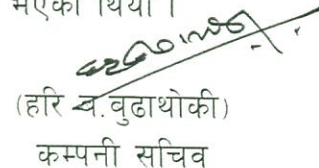 भएको थियो ।
(हरि ब.बुढाथोकी)
कम्पनी सचिव